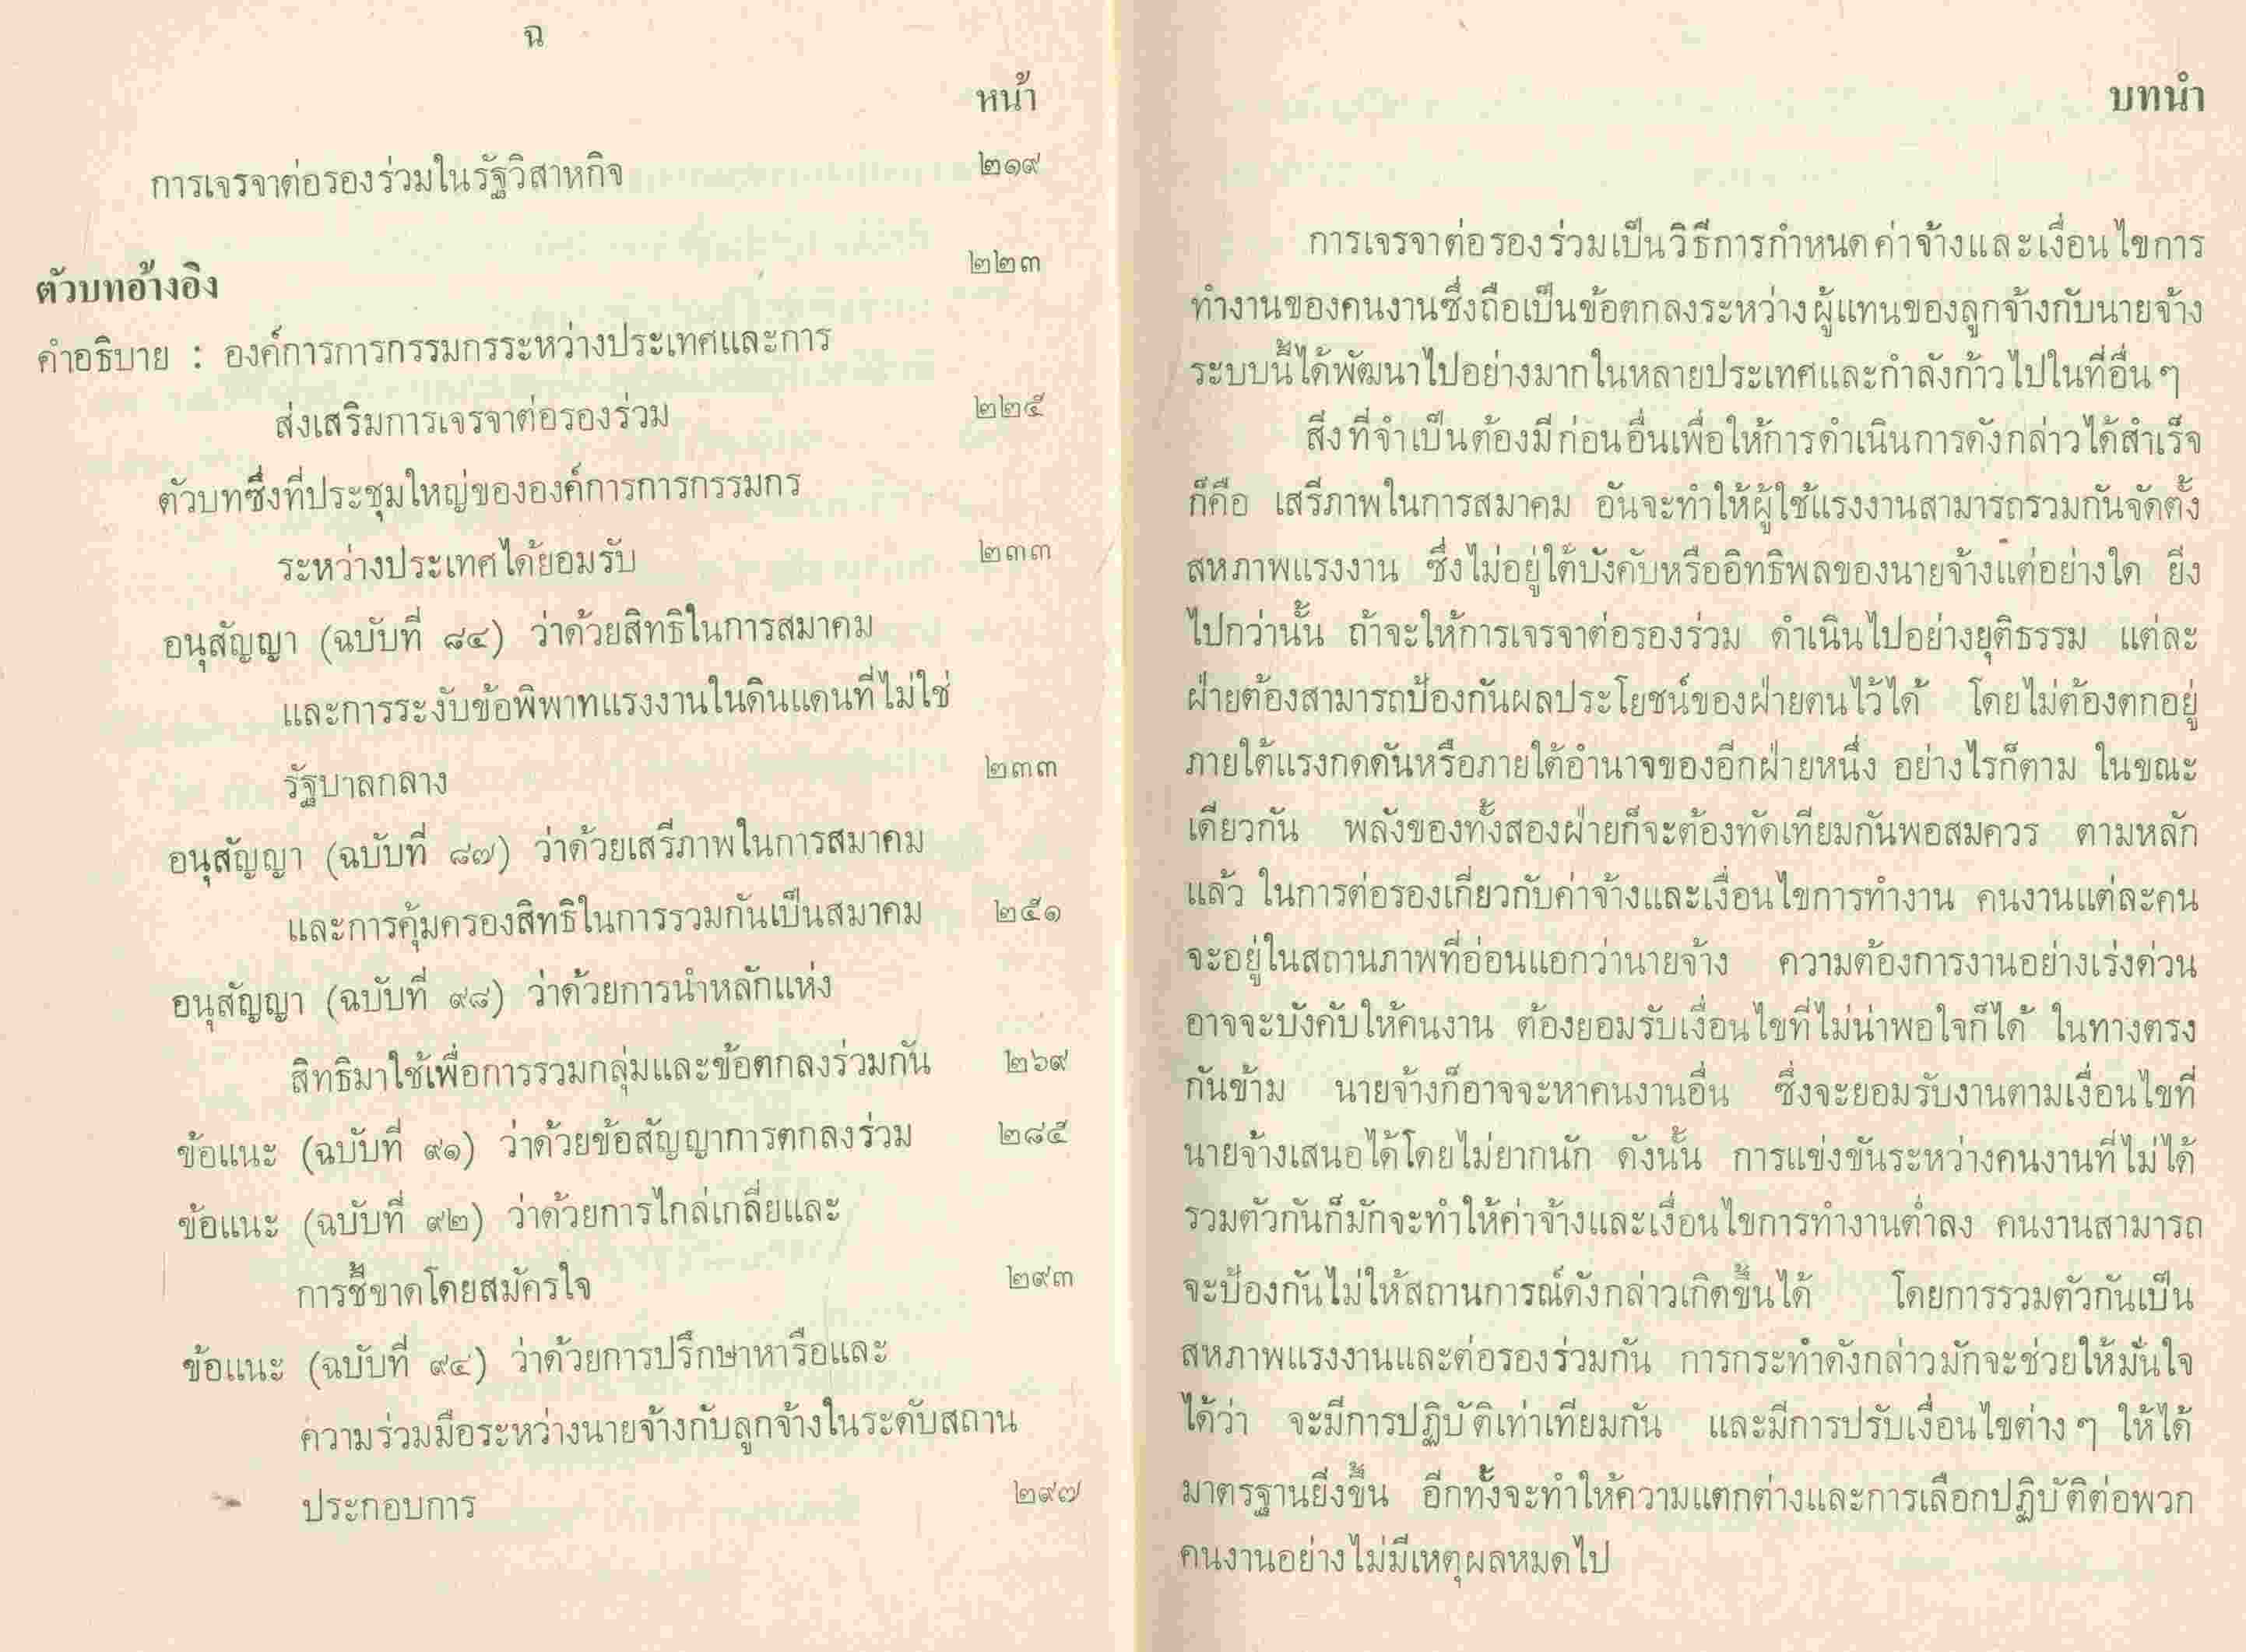 ฉ
หน้า
การเจรจาต่อรองร่วมในรัฐวิสาหกิจ ๒๑๙
ตัวบทอ้างอิง ๒๒๓
คำอธิบาย : องค์การการกรรมกรระหว่างประเทศและการ
ส่งเสริมการเจรจาต่อรองร่วม ๒๒๕
ตัวบทซึ่งที่ประชุมใหญ่ขององค์การการกรรมกร
ระหว่างประเทศได้ยอมรับ ๒๓๓
อนุสัญญา (ฉบับที่ ๘๔) ว่าด้วยสิทธิในการสมาคม
และการระงับข้อพิพาทแรงงานในดินแดนที่ไม่ใช่
รัฐบาลกลาง ๒๓๓
อนุสัญญา (ฉบับที่ ๘๗) ว่าด้วยเสรีภาพในการสมาคม
และการคุ้มครองสิทธิในการรวมกันเป็นสมาคม ๒๕๑
อนุสัญญา (ฉบับที่ ๙๘) ว่าด้วยการนำหลักแห่ง
สิทธิมาใช้เพื่อการรวมกลุ่มและข้อตกลงร่วมกัน ๒๖๙
ข้อแนะ (ฉบับที่ ๙๑) ว่าด้วยข้อสัญญาการตกลงร่วม ๒๘๕
ข้อแนะ (ฉบับที่ ๙๒) ว่าด้วยการไกล่เกลี่ยและ
การชี้ขาดโดยสมัครใจ ๒๙๓
ข้อแนะ (ฉบับที่ ๙๔) ว่าด้วยการปรึกษาหารือและ
ความร่วมมือระหว่างนายจ้างกับลูกจ้างในระดับสถาน
ประกอบการ ๒๙๗
บทนำ
การเจรจาต่อรองร่วมเป็นวิธีการกำหนดค่าจ้างและเงื่อนไขการ
ทำงานของคนงานซึ่งถือเป็นข้อตกลงระหว่างผู้แทนของลูกจ้างกับนายจ้าง
ระบบนี้ได้พัฒนาไปอย่างมากในหลายประเทศและกำลังก้าวไปในที่อื่นๆ
สิ่งที่จำเป็นต้องมีก่อนอื่นเพื่อให้การดำเนินการดังกล่าวได้สำเร็จ
ก็คือ เสรีภาพในการสมาคม อันจะทำให้ผู้ใช้แรงงานสามารถรวมกันจัดตั้ง
สหภาพแรงงาน ซึ่งไม่อยู่ใต้บังคับหรืออิทธิพลของนายจ้างแต่อย่างใด ยิ่ง
ไปกว่านั้น ถ้าจะให้การเจรจาต่อรองร่วม ดำเนินไปอย่างยุติธรรม แต่ละ
ฝ่ายต้องสามารถป้องกันผลประโยชน์ของฝ่ายตนไว้ได้ โดยไม่ต้องตกอยู่
ภายใต้แรงกดดันหรือภายใต้อำนาจของอีกฝ่ายหนึ่ง อย่างไรก็ตาม ในขณะ
เดียวกัน พลังของทั้งสองฝ่ายก็จะต้องทัดเทียมกันพอสมควร ตามหลัก
แล้ว ในการต่อรองเกี่ยวกับค่าจ้างและเงื่อนไขการทำงาน คนงานแต่ละคน
จะอยู่ในสถานภาพที่อ่อนแอกว่านายจ้าง ความต้องการงานอย่างเร่งด่วน
อาจจะบังคับให้คนงาน ต้องยอมรับเงื่อนไขที่ไม่น่าพอใจก็ได้ ในทางตรง
กันข้าม นายจ้างก็อาจจะหาคนงานอื่น ซึ่งจะยอมรับงานตามเงื่อนไขที่
นายจ้างเสนอได้โดยไม่ยากนัก ดังนั้น การแข่งขันระหว่างคนงานที่ไม่ได้
รวมตัวกันก็มักจะทำให้ค่าจ้างและเงื่อนไขการทำงานต่ำลง คนงานสามารถ
จะป้องกันไม่ให้สถานการณ์ดังกล่าวเกิดขึ้นได้ โดยการรวมตัวกันเป็น
สหภาพแรงงานและต่อรองร่วมกัน การกระทำดังกล่าวมักจะช่วยให้มั่นใจ
ได้ว่า จะมีการปฏิบัติเท่าเทียมกัน และมีการปรับเงื่อนไขต่างๆ ให้ได้
มาตรฐานยิ่งขึ้น อีกทั้งจะทำให้ความแตกต่างและการเลือกปฏิบัติต่อพวก
คนงานอย่างไม่มีเหตุผลหมดไป